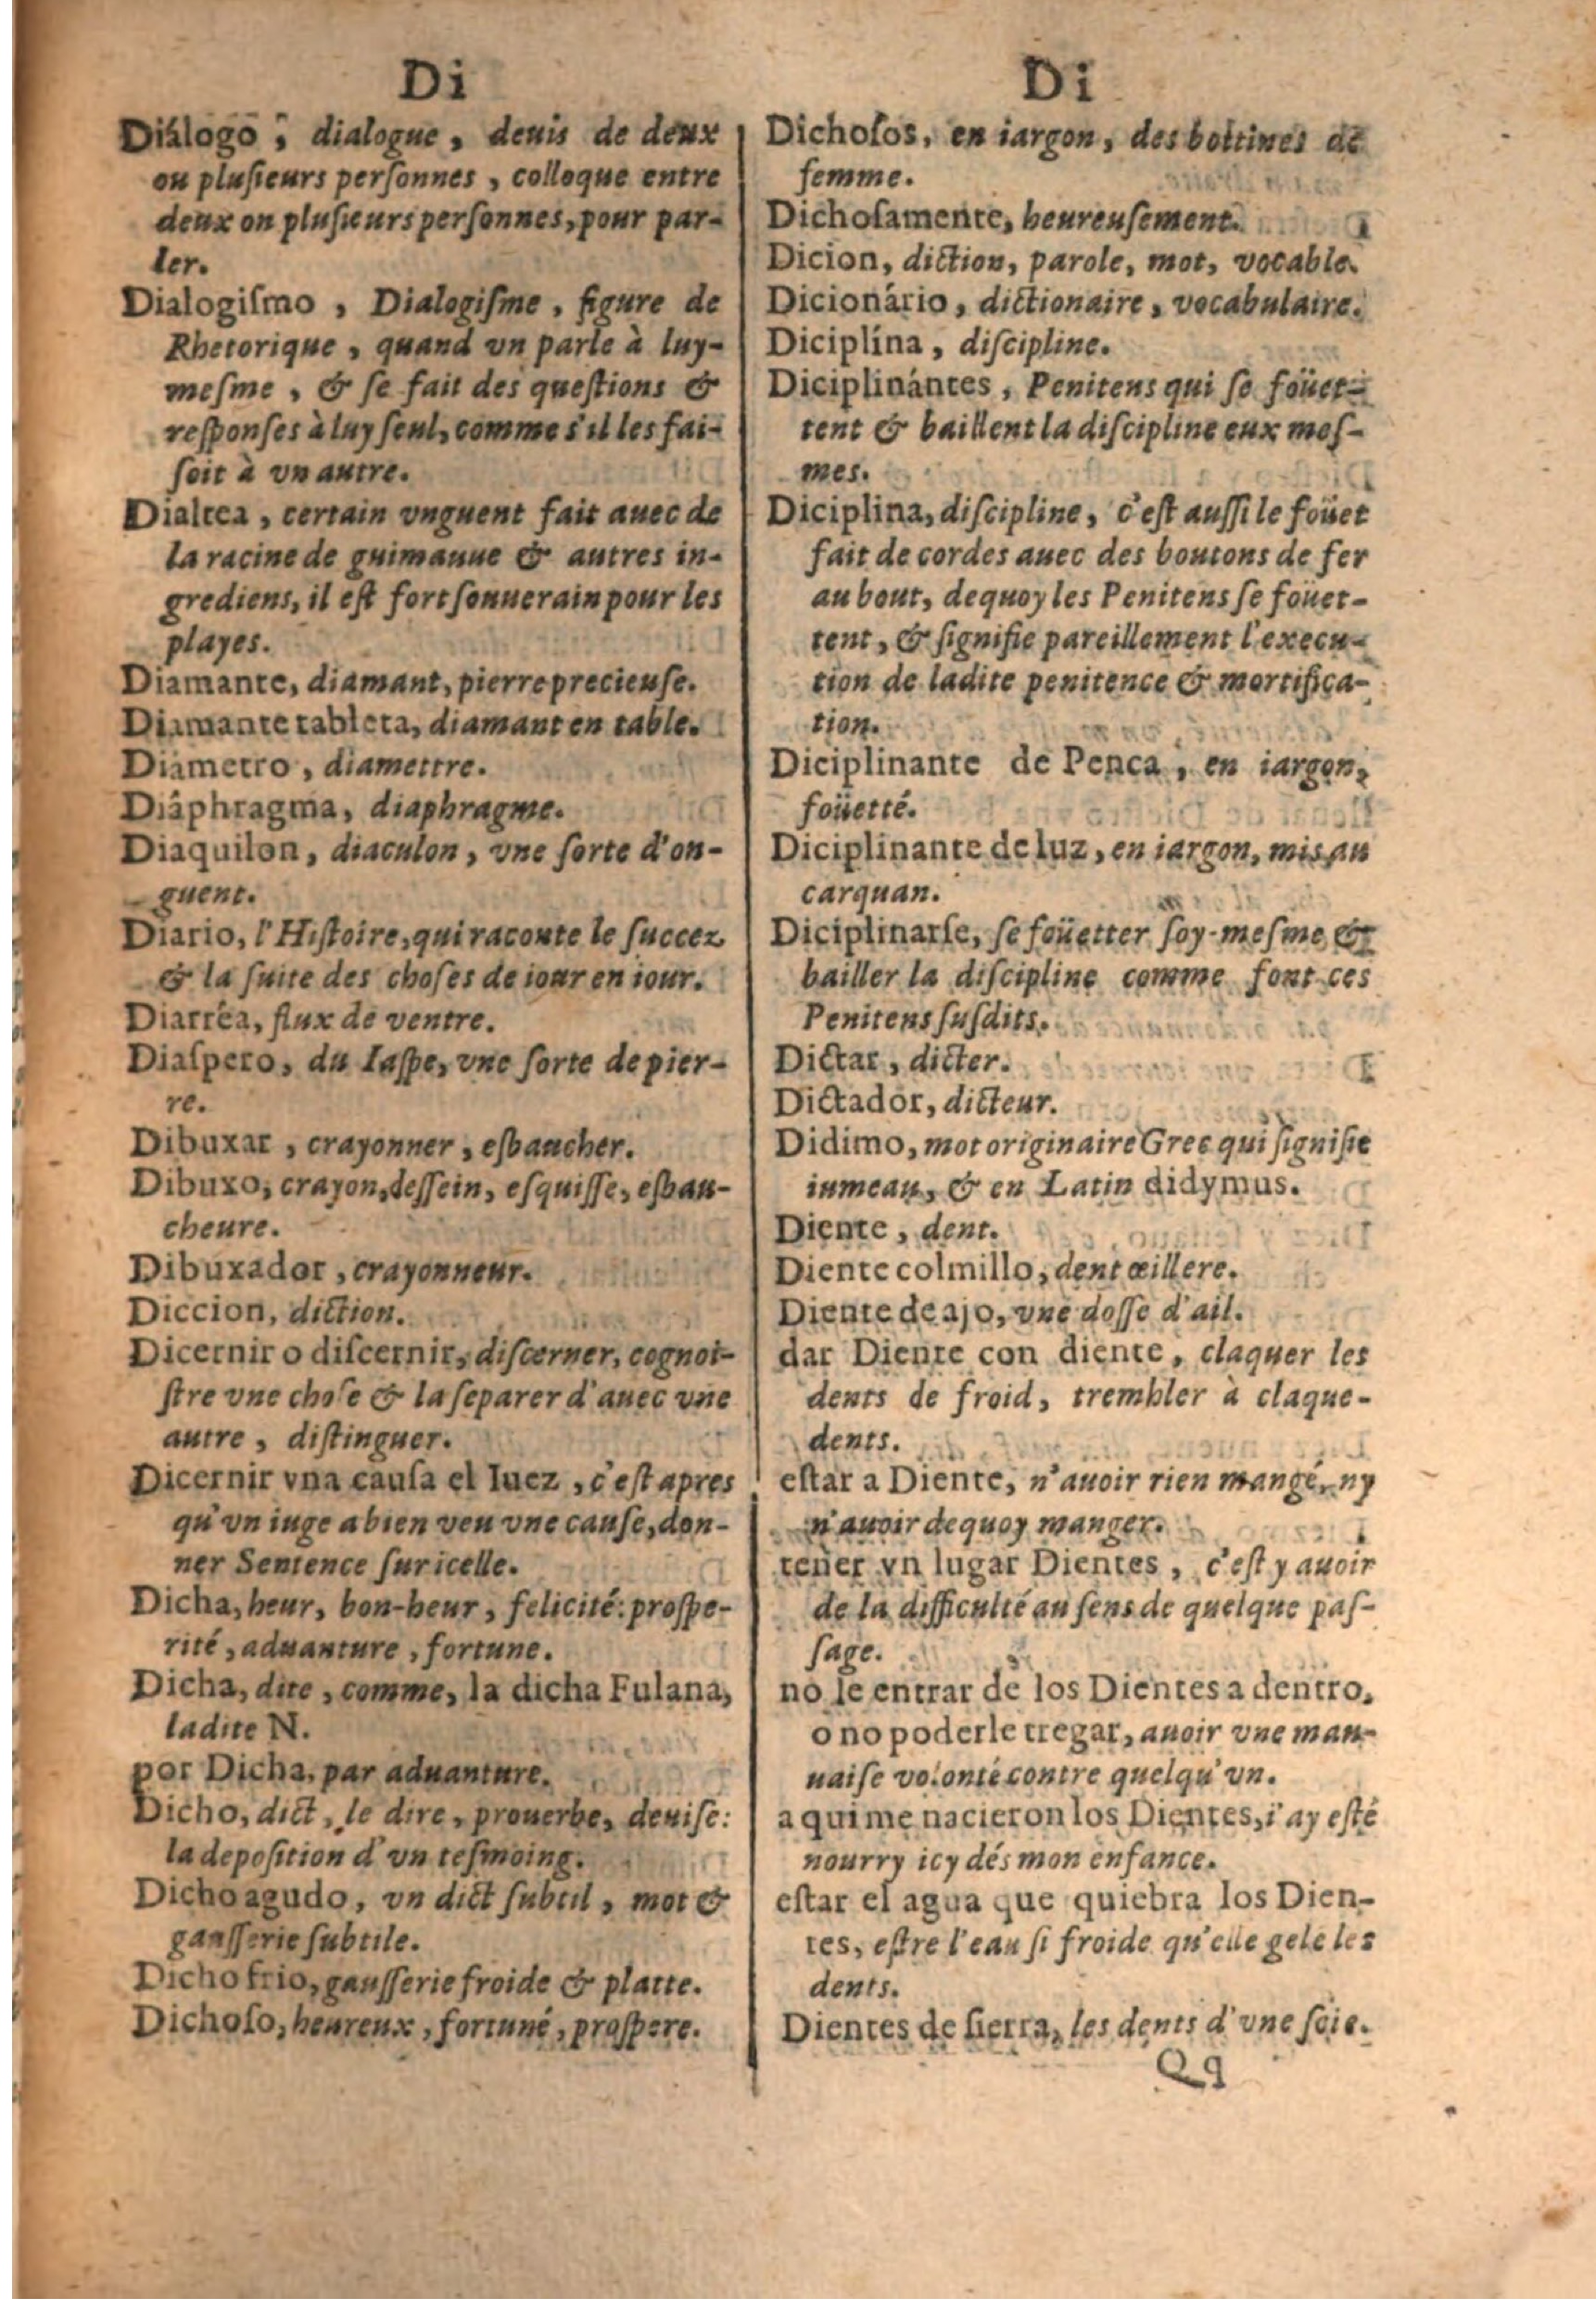 Di
Diálogo, dialogue, deuis de deux
ou pluſieurs perſonnes, colloque entre
deux ou pluſieurs perſonnes, pour par-
ler.
Dialogiſmo, Dialogiſme, figure de
Rhetorique, quand vn parle à luy-
meſme, & ſe fait des queſtions &
reſponſes à luy ſeul, comme s'il les fai-
ſoit à vn autre.
Dialtea, certain vnguent fait auec de
la racine de guimauue & autres in-
grediens, il eſt fort ſouuerain pour les
playes.
Diamante, diamant, pierre precieuſe.
Diamante tableta, diamant en table.
Diámetro, diamettre.
Diáphragma, diaphragme.
Diaquilon, diaculon, vne ſorte d'on-
guent.
Diario, l'Hiſtoire, qui raconte le ſuccez
& la ſuite des choſes de iour en iour.
Diarréa, flux de ventre.
Diaſpero, du Iaſpe, vne ſorte de pier-
re.
Dibuxar, crayonner, eſbaucher.
Dibuxo, crayon, deſſein, eſquiſſe, eſbau-
cheure.
Dibuxador, crayonneur.
Diccion, diction.
Dicernir o diſcernir, diſcerner, cognoi-
ſtre vne choſe & la ſeparer d'auec vne
autre, diſtinguer.
Dicernir vna cauſa el Iuez, c'eſt apres
qu'vn iuge a bien veu vne cauſe, don-
ner Sentence ſur icelle.
Dicha, heur, bon-heur, felicité: proſpe-
rité, aduanture, fortune.
Dicha, dite, comme, la dicha Fulana,
ladite N.
por Dicha, par aduanture.
Dicho, dict, le dire, prouerbe, deuiſe:
la depoſition d'vn teſmoing.
Dicho agudo, vn dict ſubtil, mot &
gauſſerie ſubtile.
Dicho frio, gauſſerie froide & platte.
Dichoſo, heureux, fortuné, proſpere.
Di
Dichoſos, en iargon, des bottines de
femme.
Dichoſamente, heureuſement.
Dicion, diction, parole, mot, vocable.
Dicionário, dictionaire, vocabulaire.
Diciplína, diſcipline.
Diciplinántes, Penitens qui ſe foüet-
tent & baillent la diſcipline eux meſ-
mes.
Diciplina, diſcipline, c'eſt auſſi le foüet
fait de cordes auec des boutons de fer
au bout, dequoy les Penitens ſe foüet-
tent, & ſignifie pareillement l'execu-
tion de ladite penitence & mortifica-
tion.
Diciplinante de Penca, en iargon,
foüetté.
Diciplinante de luz, en iargon, mis au
carquan.
Diciplinarſe, ſe foüetter ſoy-meſme &
bailler la diſcipline comme font ces
Penitens ſuſdits.
Dictar, dicter.
Dictador, dicteur.
Didimo, mot originaire Grec qui ſignifie
iumeau, & en Latin didymus.
Diente, dent.
Diente colmillo, dent œillere.
Diente de ajo, vne doſſe d'ail.
dar Diente con diente, claquer les
dents de froid, trembler à claque-
dents.
eſtar a Diente, n'auoir rien mangé, ny
n'auoir dequoy manger.
tener vn lugar Dientes, c'eſt y auoir
de la difficulté au ſens de quelque paſ-
ſage.
no le entrar de los Dientes a dentro,
o no poderle tregar, auoir vne mau-
uaiſe volonté contre quelqu'vn.
a qui me nacieron los Dientes, i'ay eſté
nourry icy dés mon enfance.
eſtar el agua que quiebra los Dien-
tes, eſtre l'eau ſi froide qu'elle gele les
dents.
Dientes de ſierra, les dents d'vne ſcie.
Qq